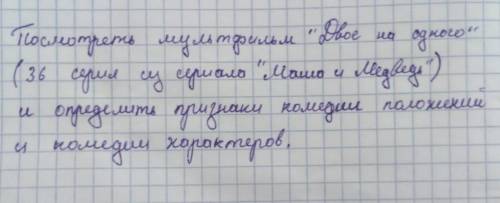 Посмотреть мультфильм "Двое на одного"
(36 серия из сериала "Маша и Медведь")
и определить признаки комедии положений
и комедии характеров.